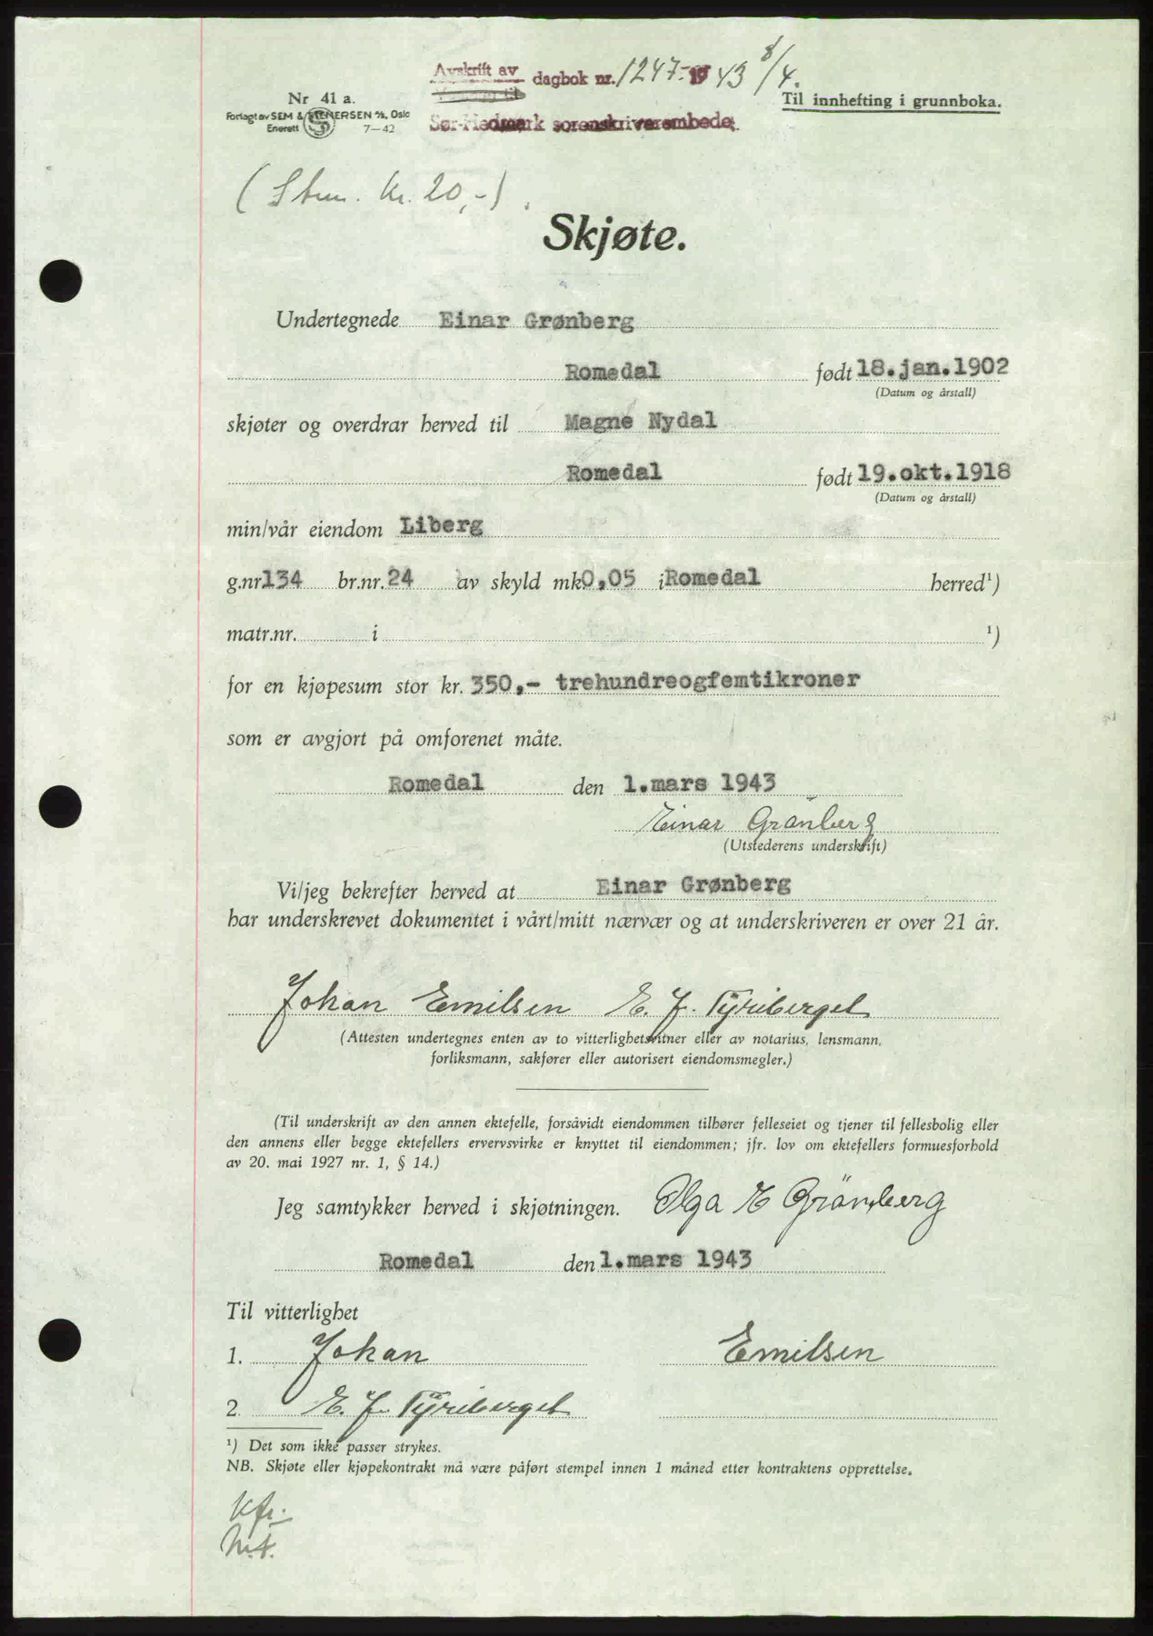 Avskrift av dagbok nr. 1247 - 1943 8/4.
Nr 41 a.
Til innhefting i grunnboka.
Forlagt av SEM & STENERSEN A/S, Oslo
Enerett 7—42
Sør-Hedmark sorenskriverembede.
(Stem. kr. 20,-).
Skjøte.
Undertegnede Einar Grønberg
Romedal født 18.jan.1902
(Datum og årstall)
skjøter og overdrar herved til Magne Nydal
Romedal født 19.okt.1918
(Datum og årstall)
min/vår eiendom Liberg
g.nr. 134 br.nr. 24 av skyld mk. 0,05 i Romedal herred¹)
matr.nr. i ¹)
for en kjøpesum stor kr. 350,- trehundreogfemtikroner
som er avgjort på omforenet måte.
Romedal den 1.mars 1943
Einar Grönberg
(Utstederens underskrift)
Vi/jeg bekrefter herved at Einar Grønberg
har underskrevet dokumentet i vårt/mitt nærvær og at underskriveren er over 21 år.
Johan Emilsen E. J. Tyriberget
(Attesten undertegnes enten av to vitterlighetsvitner eller av notarius, lensmann,
forliksmann, sakfører eller autorisert eiendomsmegler.)
(Til underskrift av den annen ektefelle, forsåvidt eiendommen tilhører felleseiet og tjener til fellesbolig eller
den annens eller begge ektefellers ervervsvirke er knyttet til eiendommen; jfr. lov om ektefellers formuesforhold
av 20. mai 1927 nr. 1, § 14.)
Jeg samtykker herved i skjøtningen. Olga E Grönberg
Romedal den 1.mars 1943
Til vitterlighet
1. Johan Emilsen
2. E. J. Tyriberget
¹) Det som ikke passer strykes.
NB. Skjøte eller kjøpekontrakt må være påført stempel innen 1 måned etter kontraktens opprettelse.
Kfr.